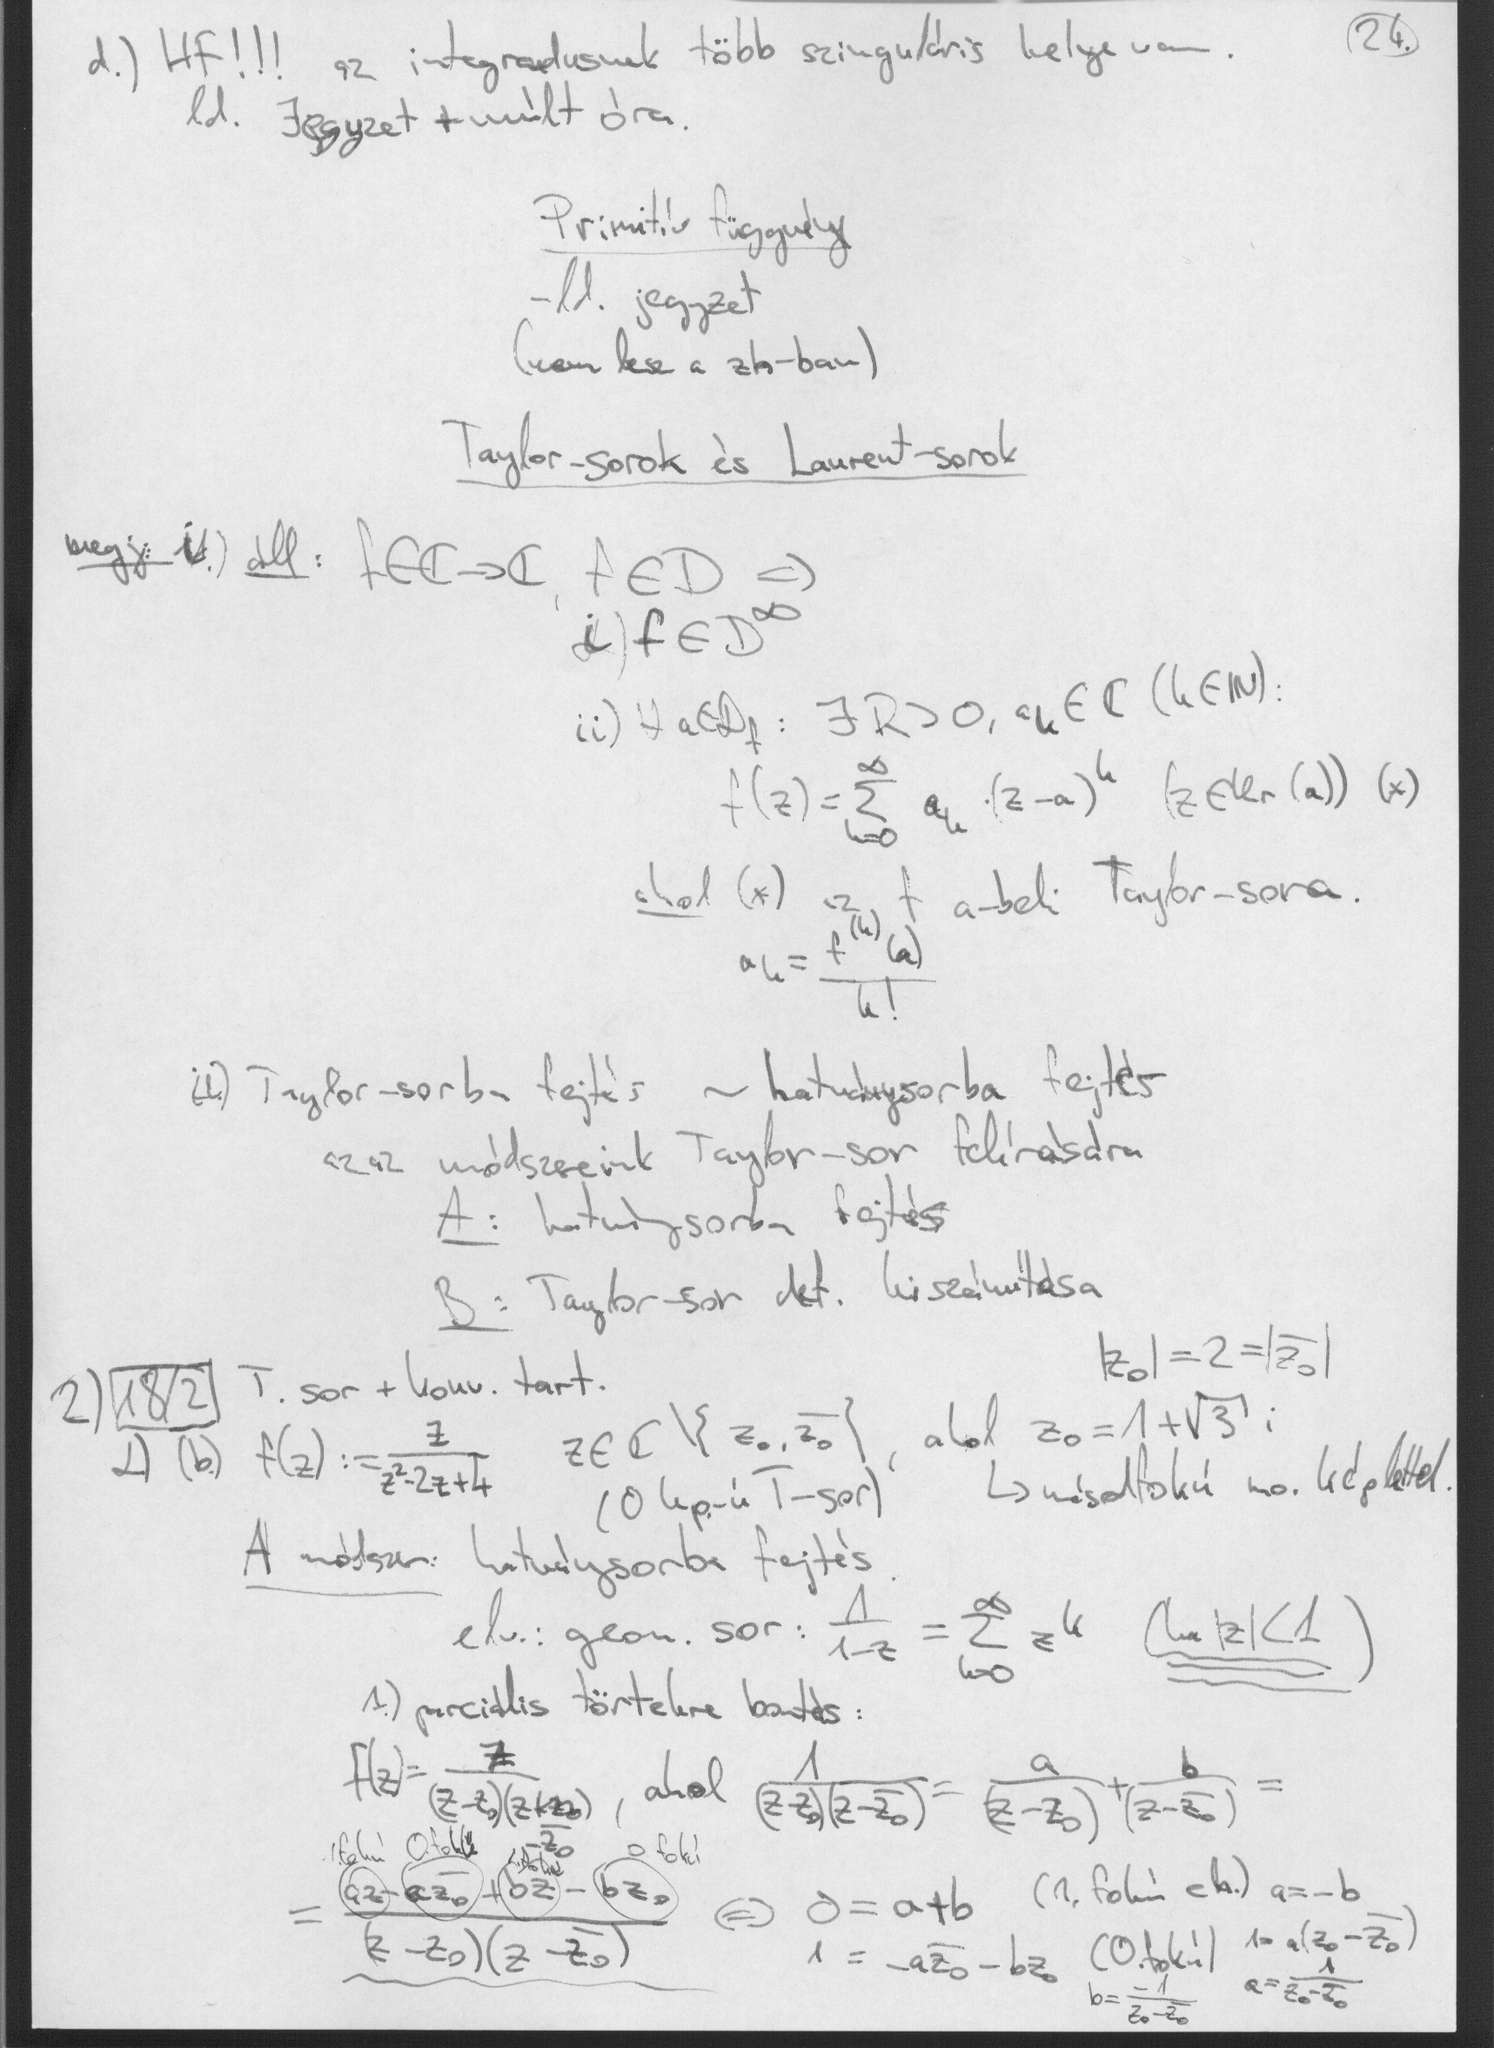 24.
d.) HF!!! az integrandusnak több szinguláris helye van.
ld. Jegyzet + múlt óra.
Primitív függvény
- ld. jegyzet
(nem lesz a zh-ban)
Taylor-sorok és Laurent-sorok
megj: i.) áll: f∈ℂ→ℂ, f∈D ⇒
i) f∈D^∞
ii) ∀ a∈D_f: ∃ R>0, a_k∈ℂ (k∈ℕ):
f(z) = ∑_{k=0}^{∞} a_k·(z-a)^k (z∈k_r(a)) (x)
ahol (x) az f a-beli Taylor-sora.
a_k = f^{(k)}(a) / k!
ii.) Taylor-sorba fejtés ~ hatványsorba fejtés
azaz módszereink Taylor-sor felírására
A: hatványsorba fejtés
B: Taylor-sor def. kiszámítása
|z_0| = 2 = |\overline{z_0}|
2) 18/2 T. sor + konv. tart.
1) (b.) f(z) := z / (z²-2z+4) z∈ℂ\{z_0, \overline{z_0}}, ahol z_0 = 1+√3 i
(0 kp.-ú T-sor) ↳ másodfokú mo. képlettel.
A módszer: hatványsorba fejtés.
elv.: geom. sor: 1/(1-z) = ∑_{k=0}^{∞} z^k (ha |z|<1)
1.) parciális törtekre bontás:
f(z) = z / (z-z_0)(z-\overline{z_0}), ahol 1/((z-z_0)(z-\overline{z_0})) = a/(z-z_0) + b/(z-\overline{z_0}) =
1. fokú 0. fokú 1. fokú 0 fokú
= (az - a\overline{z_0} + bz - bz_0) / ((z-z_0)(z-\overline{z_0})) ⇔ 0 = a+b (1. fokú eh.) a=-b
1 = -a\overline{z_0} - bz_0 (0. fokú) 1 = a(z_0-\overline{z_0})
b = -1/(z_0-\overline{z_0}) a = 1/(z_0-\overline{z_0})